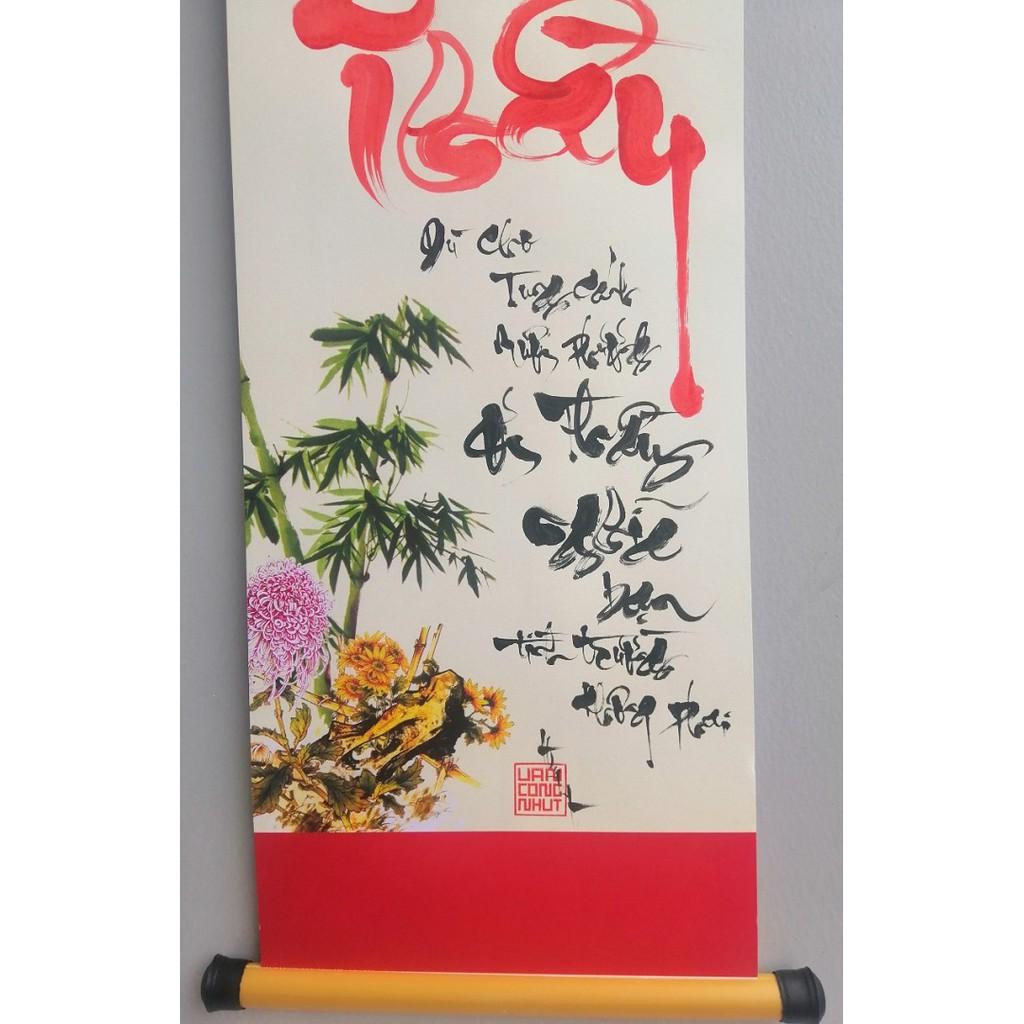 Thầy
Dù cho
Tung cánh
Muôn phương
Ơn Thầy
Nghĩa
bạn
tình trường
không phai
VĂN
CÔNG
NHỰT